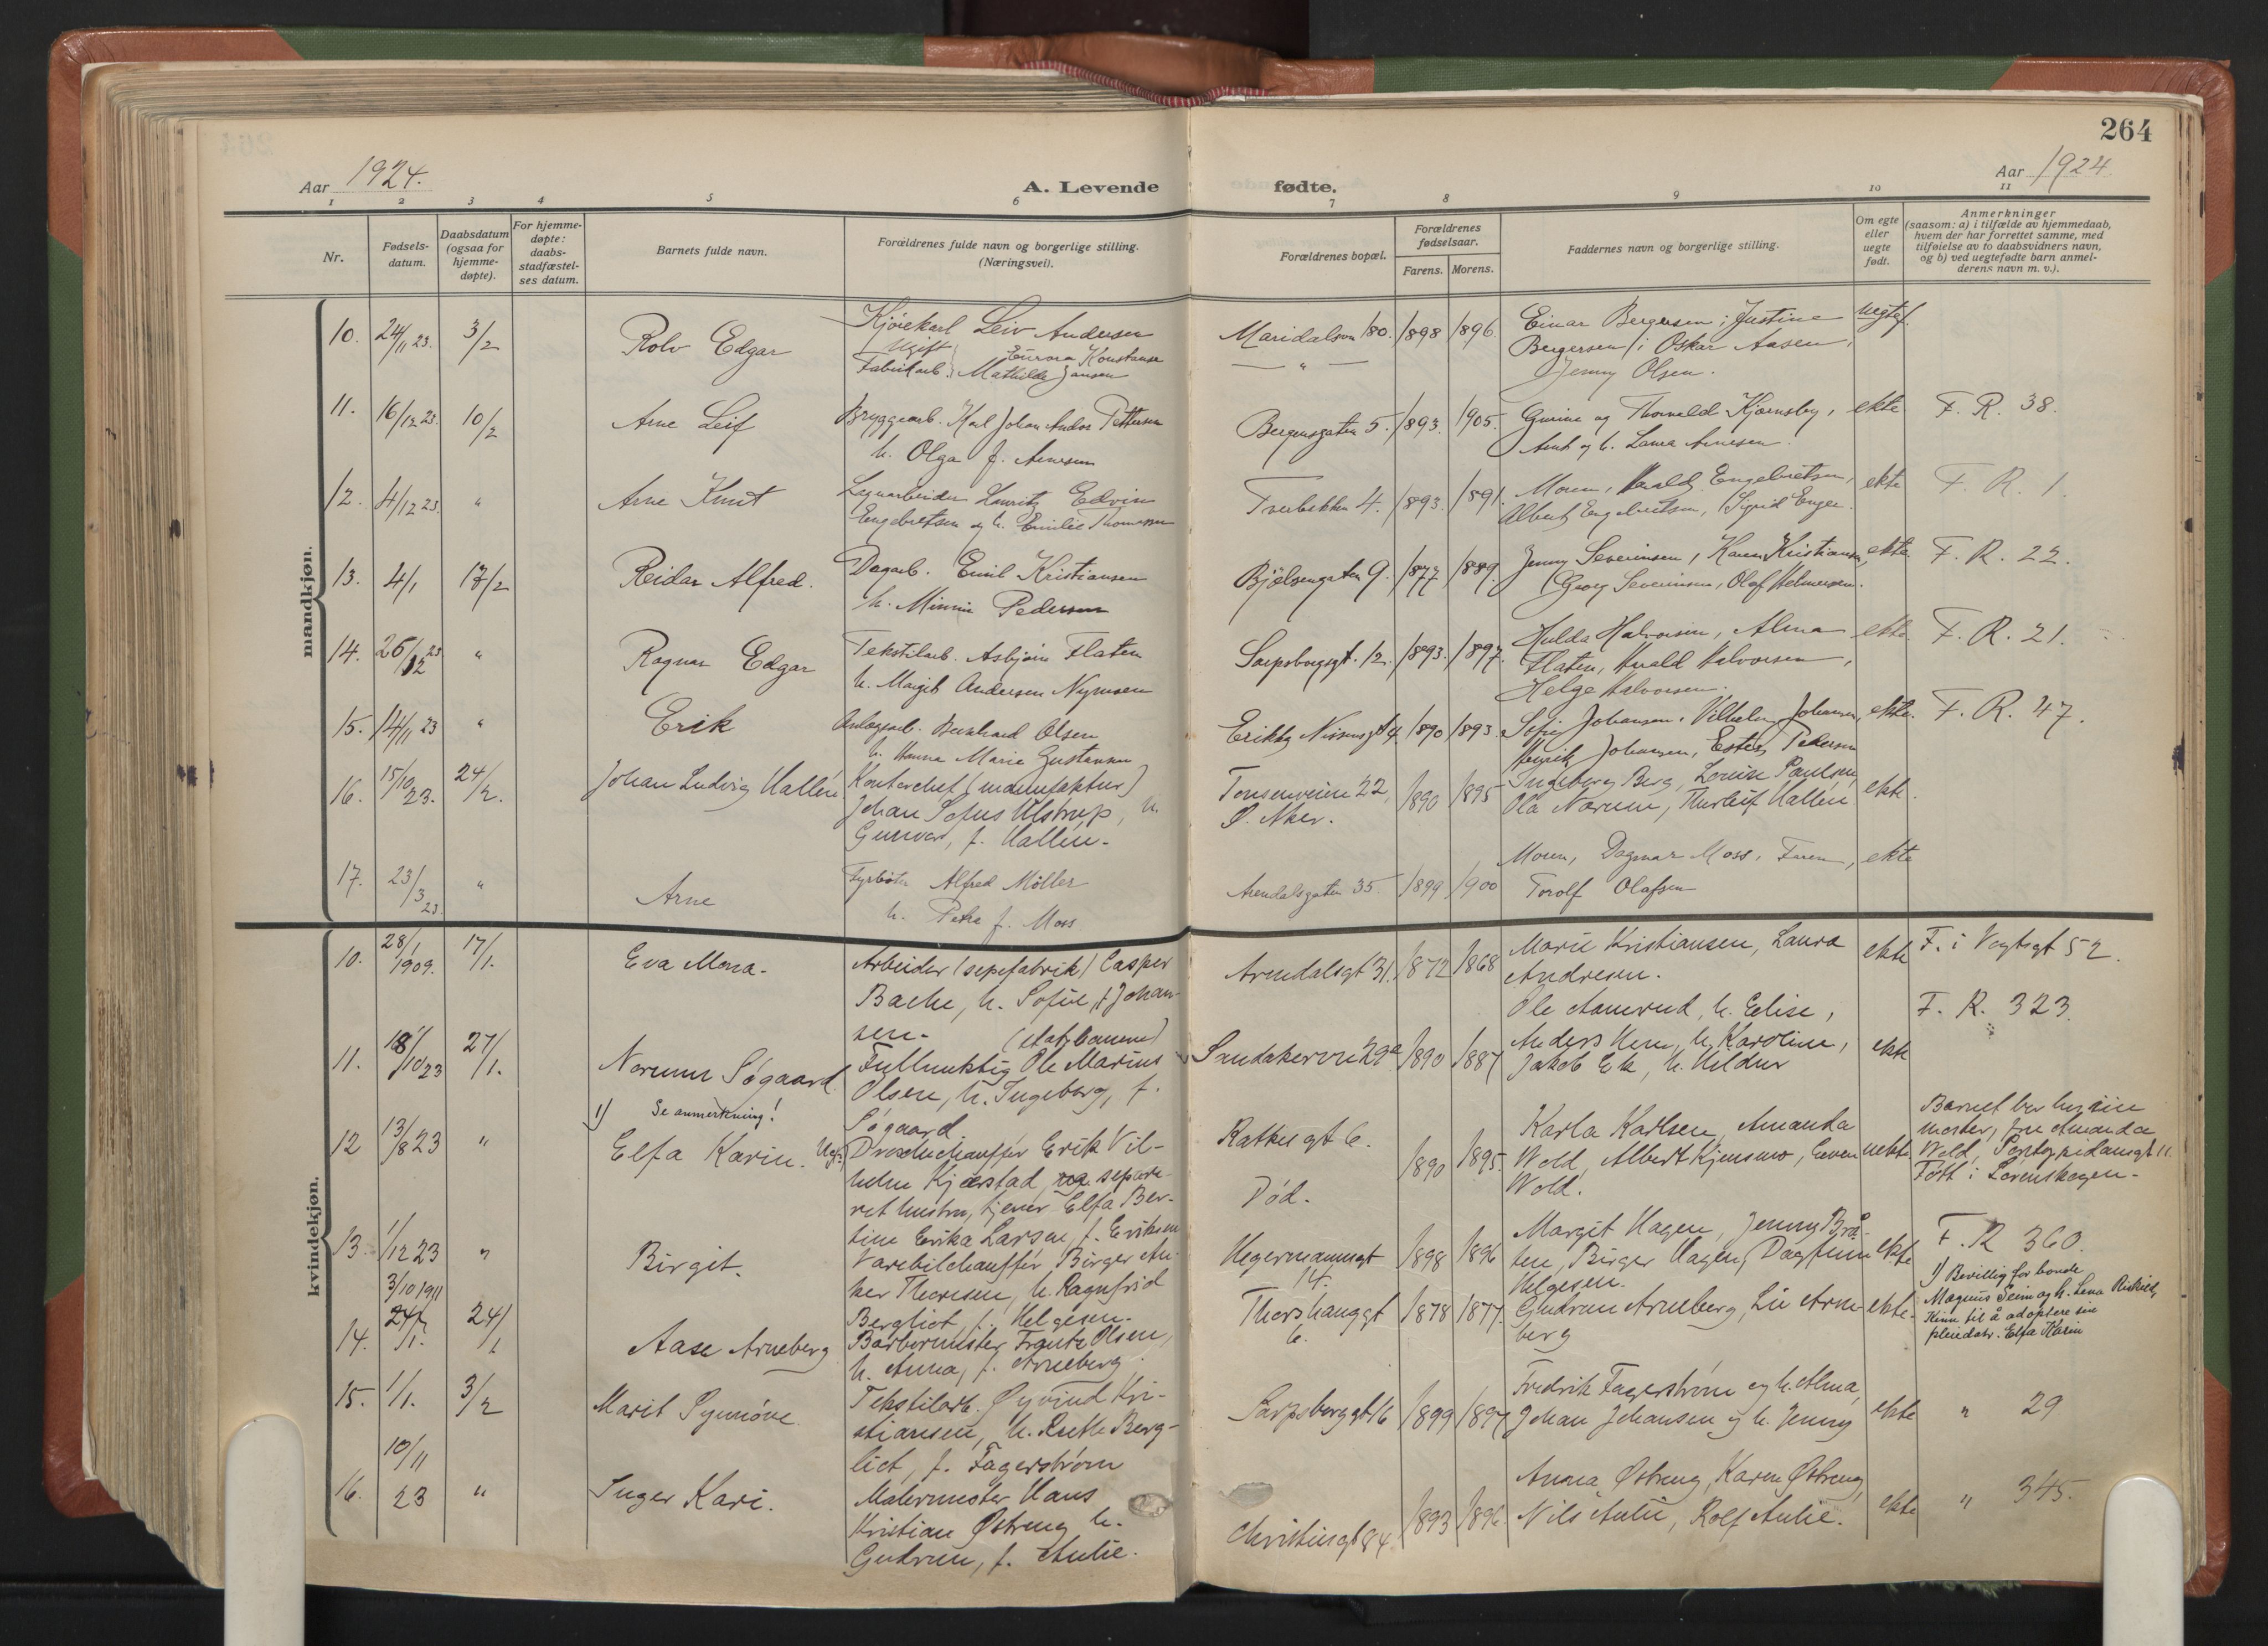 264
Aar 1924.
A. Levende
fødte.
Aar 1924
1 2 3 4 5 6 7 8 9 10 11
Nr.
Fødsels-
datum.
Daabsdatum
(ogsaa for
hjemme-
døpte).
For hjemme-
døpte:
daabs-
stadfæstel-
ses datum.
Barnets fulde navn.
Forældrenes fulde navn og borgerlige stilling.
(Næringsvei).
Forældrenes bopæl.
Forældrenes
fødselsaar.
Farens. Morens.
Faddernes navn og borgerlige stilling.
Om egte
eller
uegte
født.
Anmerkninger
(saasom: a) i tilfælde av hjemmedaab,
hvem der har forrettet samme, med
tilføielse av to daabsvidners navn,
og b) ved uegtefødte barn anmel-
derens navn m. v.).
mandkjøn.
10. 24/11 23. 3/2
Rolv Edgar
Kjørekarl Leiv Andersen
Ugift Eurora Konstanse
Fabrikarb. Mathilde Jansen
Maridalsvn 180. 1898 1896.
— " —
Einar Bergersen; Justine
Bergersen; Oskar Aasen,
Jenny Olsen.
uegtef.
11. 16/12 23. 10/2
Arne Leif
Bryggearb. Karl Johan Andor Pettersen
h. Olga f. Arnesen
Bergensgaten 5. 1893. 1905.
Gurine og Thorvald Kjærnsby,
Arnt og h. Laura Arnesen.
ekte
F. R. 38.
12. 4/12 23. "
Arne Knut
Lagerarbeider Lauritz Edvin
Engebretsen og h. Emilie Thomassen
Tverbakken 4. 1893. 1891.
Moren, Harald Engebretsen,
Albert Engebretsen, Sigrid Enger.
ekte
F. R. 1.
13. 4/1 17/2
Reidar Alfred.
Dagarb. Emil Kristiansen
h. Minnie Pedersen
Bjølsengaten 9. 1877 1889.
Jenny Severinsen, Karen Kristiansen,
Georg Severinsen, Olaf Helmersen.
ekte
F. R. 22.
14. 26/12 23 "
Ragnar Edgar
Tekstilarb. Asbjørn Flaten
h. Margit Andersen Nymoen
Sarpsborggt. 12. 1893. 1897.
Hulda Halvorsen, Alma
Flaten, Harald Halvorsen,
Helge Halvorsen.
ekte
F. R. 21.
15. 14/11 23 "
Erik
Anlægsarb. Bernhard Olsen
h. Hanna Marie Gustavsen
1890 1893.
Sofie Johansen, Vilhelm Johansen,
Henrik Johansen, Ester Pedersen
ekte.
F. R. 47.
16. 15/10 23. 24/2.
Johan Ludvig Hallén
Kontorchef (manufaktur)
Johan Sofus Ulstrup, h.
Gunvor, f. Hallén.
Tonsenveien 22,
Ø. Aker.
1890 1895
Ingeborg Berg, Louise Paulsen,
Ola Narum, Thorleif Hallén
ekte.
17. 23/3 23. "
Arne
Fyrbøter Alfred Möller
h. Petra f. Moss
Arendalsgaten 35. 1899 1900
Moren, Dagmar Moss, Faren,
Torolf Olafsen
ekte
kvindekjøn.
10. 28/1 1909. 17/1.
Eva Mona.
Arbeider (sepefabrik) Casper
Bache, h. Sofie, f. Johan-
sen.
Arendalsgt 31. 1872 1868
Marie Kristiansen, Laura
Andresen.
ekte
F. i Vogtsgt 52.
11. 18/10 23 27/1.
Norunn Søgaard.
(statsbanene)
Fullmektig Ole Marius
Olsen, h. Ingeborg, f.
Søgaard
Sandakervn 29a 1890 1887
Ole Aamrud, h. Elise,
Anders Hem, h. Karoline,
Jakob Ek, h. Hildur
ekte
F. R. 323.
12 13/8 23 "
1) Se anmerkning!
Elfa Karin.
Droschechauffør Erik Vil-
helm Kjærstad, og separe-
ret hustru, tjener Elfa Ber-
tine Erika Larsen, f. Eriksen
Ratkesgt 6.
Død.
1890 1895.
Karla Karlsen, Amanda
Wold, Albert Kjensmo, Even
Wold.
uekte
Barnet bor hos sin
moster, fru Amanda
Wold, Pontoppidansgt 11
Født i Lørenskogen.
13. 1/12 23 "
Birgit.
Varebilchauffør Birger An-
ker Thoresen, h. Ragnfrid
Bergliot, f. Helgesen.
Hegermannsgt
14.
1898 1896
Margit Hagen, Jenny Brå-
ten, Birger Hagen, Dagfinn
Helgesen.
ekte
F. R 360.
1) Bevillig for bonde
Magnus Seim og h. Lena
Kinn til å adoptere sin
pleiedatr. Elfa Karin
14. 3/10 1911 24/1. 24/1
Aase Arneberg
Barbermester Frantz Olsen,
h. Anna, f. Arneberg.
Thorshauggt
6.
1878 1877.
Gudrun Arneberg, Liv Arne-
berg
ekte.
15. 1/1. 3/2
Marit Synnøve
Tekstilarb. Øyvind Kri-
stiansen, h. Ruth Berg-
liot, f. Fagerstrøm
Sarpsborggt 16 1899 1897
Fredrik Fagerstrøm og h. Alma,
Johan Johansen og h. Jenny
ekte
" 29
16. 10/11 23 "
Inger Kari.
Malermester Hans
Kristian Østreng h.
Gudrun, f. Aulie.
Christiesgt 84 1893 1896
Anna Østreng, Karen Østreng,
Nils Aulie, Rolf Aulie.
ekte
" 345.